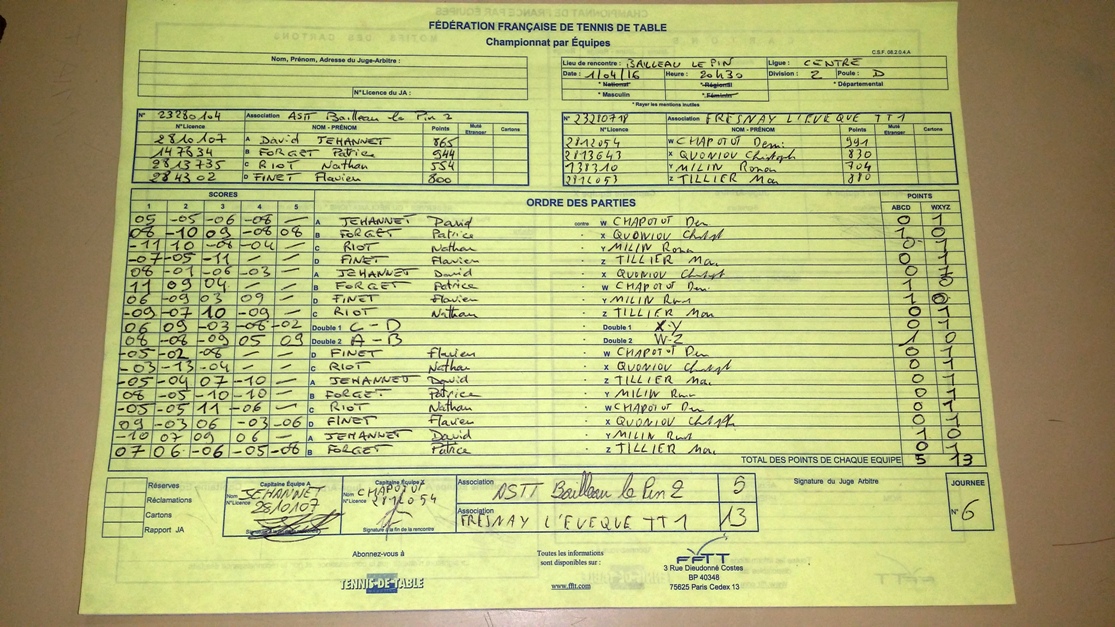 FÉDÉRATION FRANÇAISE DE TENNIS DE TABLE
Championnat par Équipes
C.S.F. 06.2.0.4.A
Nom, Prénom, Adresse du Juge-Arbitre :
N°Licence du JA :
Lieu de rencontre : BAILLEAU LE PIN Ligue : CENTRE
Date : 1/04/16 Heure : 20h30 Division : 2 Poule : D
* National * Régional * Départemental
* Masculin * Féminin
* Rayer les mentions inutiles
N° 23280104 Association ASTT Bailleau le Pin 2
N°Licence NOM - PRÉNOM Points Muté Etranger Cartons
2810107 A David JEHANNET 865
147834 B FORGET Patrice 544
2813735 C RIOT Nathan 554
284302 D FINET Flavien 800
N° 23280718 Association FRESNAY L'EVEQUE TT 1
N°Licence NOM - PRÉNOM Points Muté Etranger Cartons
2812054 W CHAPOTOT Deni 991
2813643 X QUONIOU Christoph 830
138310 Y MILIN Ronan 704
2812053 Z TILLIER Max 880
SCORES ORDRE DES PARTIES POINTS
1 2 3 4 5 ABCD WXYZ
05 -05 -06 -08 — A JEHANNET David contre W CHAPOTOT Den 0 1
08 -10 09 -08 08 B FORGET Patrice X QUONIOU Christ 1 0
-11 10 -08 -04 — C RIOT Nathan Y MILIN Ronan 0 1
-07 -05 -11 — — D FINET Flavien Z TILLIER Max 0 1
08 -01 -06 -03 — A JEHANNET David X QUONIOU Christ 0 1
11 09 04 — — B FORGET Patrice W CHAPOTOT Den 1 0
06 -09 03 09 — D FINET Flavien Y MILIN 1 0
-09 -07 10 -09 — C RIOT Nathan Z TILLIER Max 0 1
06 09 -03 -08 -02 Double 1 C - D Double 1 X-Y 0 1
08 -08 -09 05 09 Double 2 A - B Double 2 W-Z 1 0
-05 -02 -08 — — D FINET Flavien W CHAPOTOT Den 0 1
-03 -13 -04 — — C RIOT Nathan X QUONIOU Christoph 0 1
-05 -04 07 -10 — A JEHANNET David Z TILLIER Max 0 1
08 -05 -10 -10 — B FORGET Patrice Y MILIN 0 1
-05 -05 11 -06 — C RIOT Nathan W CHAPOTOT Den 0 1
09 -03 06 -03 -06 D FINET Flavien X QUONIOU Christoph 0 1
-10 07 09 06 — A JEHANNET David Y MILIN 1 0
07 06 -06 -05 -08 B FORGET Patrice Z TILLIER Max 0 1
TOTAL DES POINTS DE CHAQUE ÉQUIPE 5 13
Réserves
Réclamations
Cartons
Rapport JA
Capitaine Équipe A
Nom JEHANNET
N°Licence 2810107
Capitaine Équipe X
Nom CHAPOTOT
N°Licence 2812054
Signature à la fin de la rencontre
Association ASTT Bailleau le Pin 2 5
Association FRESNAY L'EVEQUE TT 1 13
Signature du Juge Arbitre
JOURNEE
N° 6
Abonnez-vous à
TENNIS-DE-TABLE
Toutes les informations
sont disponibles sur :
www.fftt.com
FFTT
3 Rue Dieudonné Costes
BP 40348
75625 Paris Cedex 13